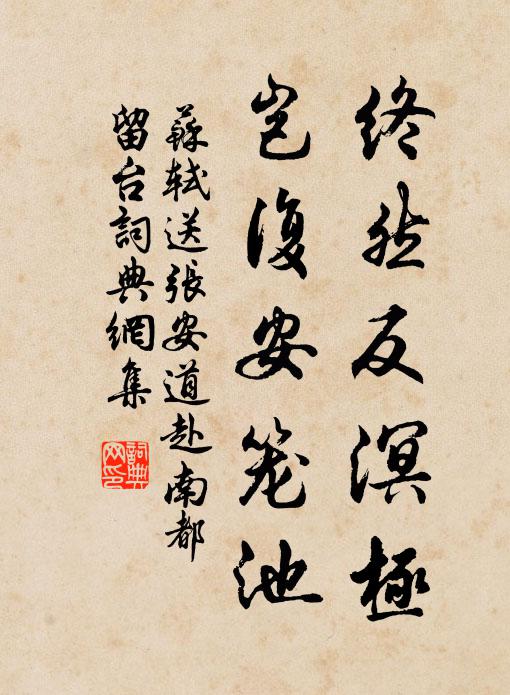 终然反溟極
岂復安笼池
蘇軾送張安道赴南都
留台詞典網集
詞典
网印